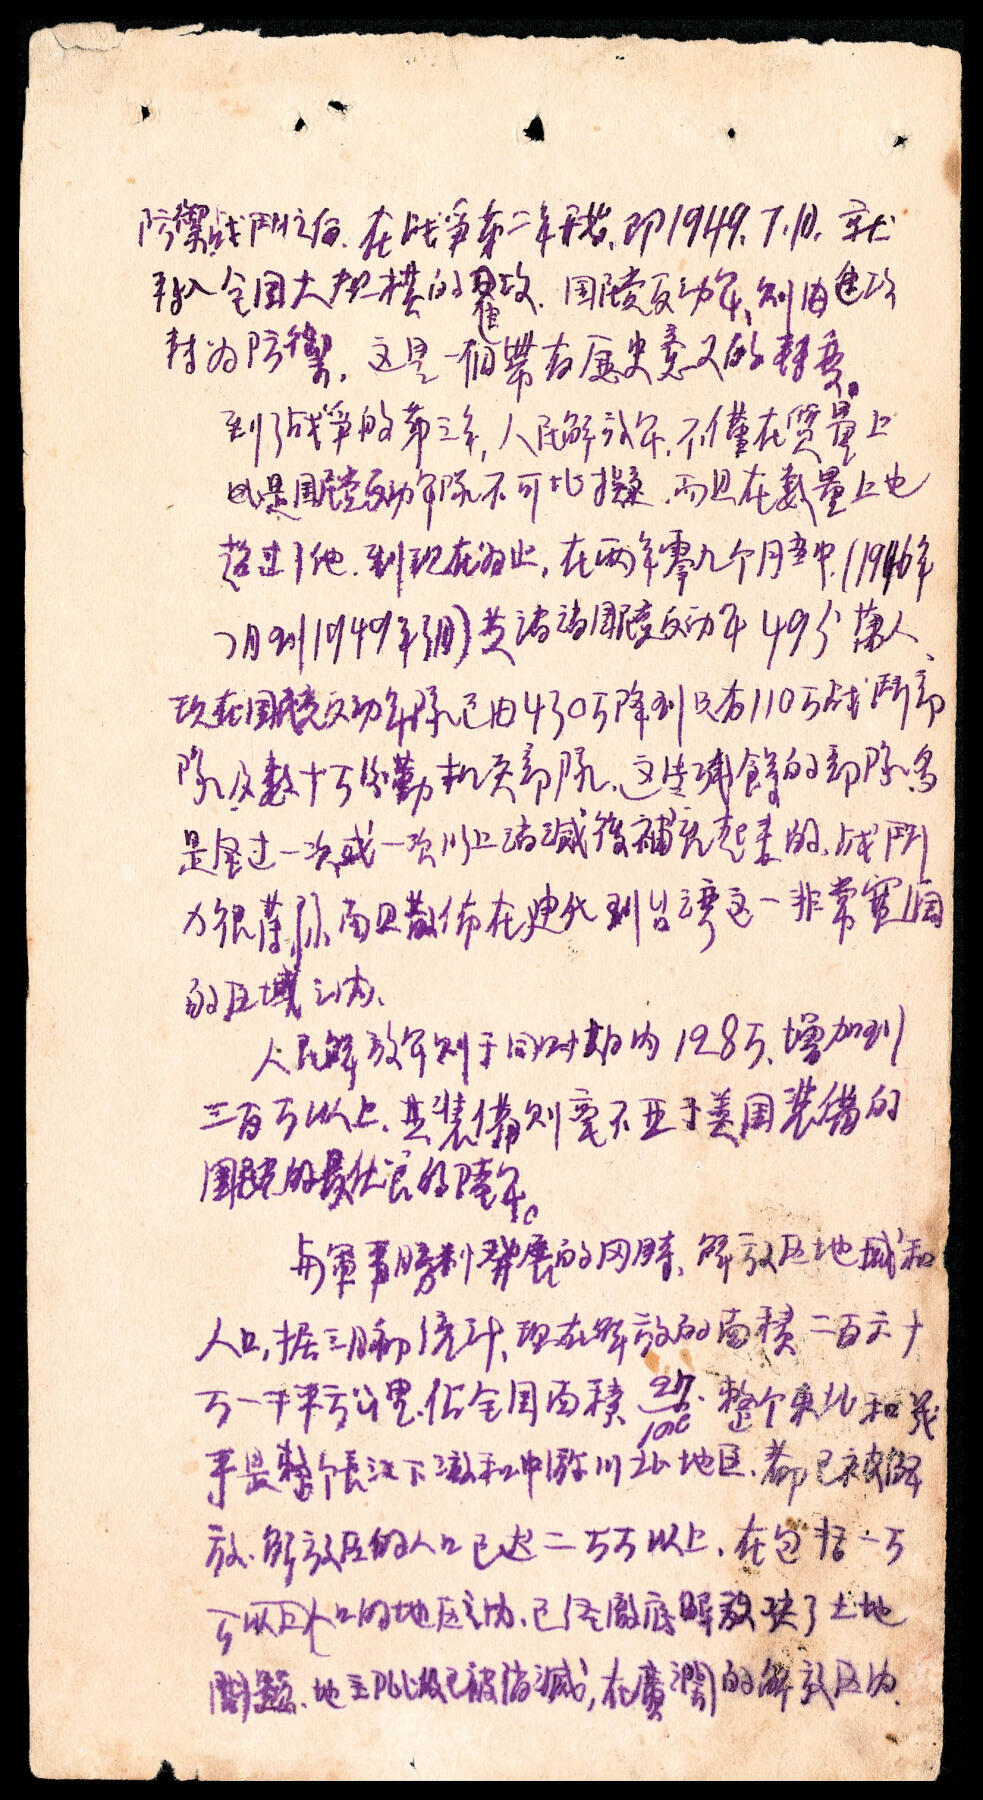 防禦战鬥之后、在战爭第二年开始、即1949.7.10.
轉入全国大規模的進攻、国民党反动军、则由進攻
转为防禦，这是一個带有歷史意义的轉变。
到了战爭的第三年，人民解放军，不僅在質量上
是国民党反动军队不可比擬、而且在数量上也
超过了他、到现在为止，在两年零九个月当中、(1946年
7月到1949年3月)共消滅国民党反动军49 萬人、
现在国民党反动军队已由430万降到只有110万战鬥部
队及数十万后勤机关部队、这些残餘的部队多
是经过一次或一次以上消滅後補充起来的、战鬥
力很薄弱、而且散佈在 到台湾这一非常寬闊
的区域之内、
人民解放军则于同时期内128万、增加到
三百万以上、其装備则毫不亚于美国装備的
国民党的最优良的陸军。
与軍事勝利發展的同時、解放区地域和
人口，据三月初统计、现在解放的面積二百六十
万一千平方公里、佔全国面積27/100、整个東北和幾
乎是整个長江下游和中游以北地区、都已被解
放、解放区的人口已达二万万以上、在包括一万
万以上人口的地区之内、已经徹底解决了土地
問題、地主阶级已被消滅，在廣濶的解放区内、